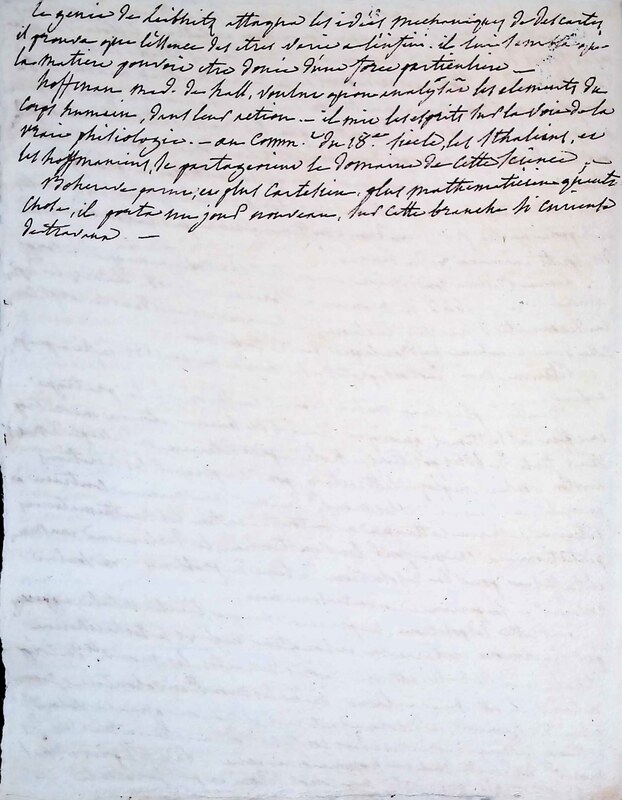 Le genie de Leibnitz attaqua les idées mechaniques de descartes,
il prouva que l'essence des etres varie a l'infini. il lui sembla que
la matiere pouvoit etre douée d'une force particuliere —
hoffman med. de hall, voulut qu'on analysat les elements du
corps humain, dans leur action. — il mit les esprits sur la voie de la
vraie phisiologie. — au Comm.t du 18eme siecle, les Sthaliens, et
les hoffmaniens, se partageoient le Domaine de cette science, —
Boherave parut, et plus Cartesien, plus mathematicien qu'eux
chose, il porta un jour nouveau, sur cette branche si curieuse
de travaux. —